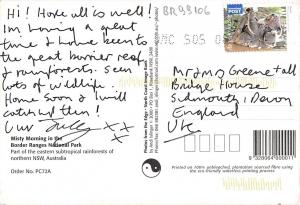 Hi! Hope all is well!
I'm having a great
time & have been to
the great barrier reef
& rainforests. seen
lots of wildlife.
Home soon & I will
catch up then!
luv
xx
x
Misty Morning in the
Border Ranges National Park
Part of the eastern subtropical rainforests of
northern NSW, Australia
Order No. PC73A
BR99106
POST
Mr & Mrs Greenstall
Bridge House
Sidmouth, Devon
England
UK
9 328064 000011
Printed on 100% subleached, plantation sourced fibre using
the eco-friendly substitutes printing process